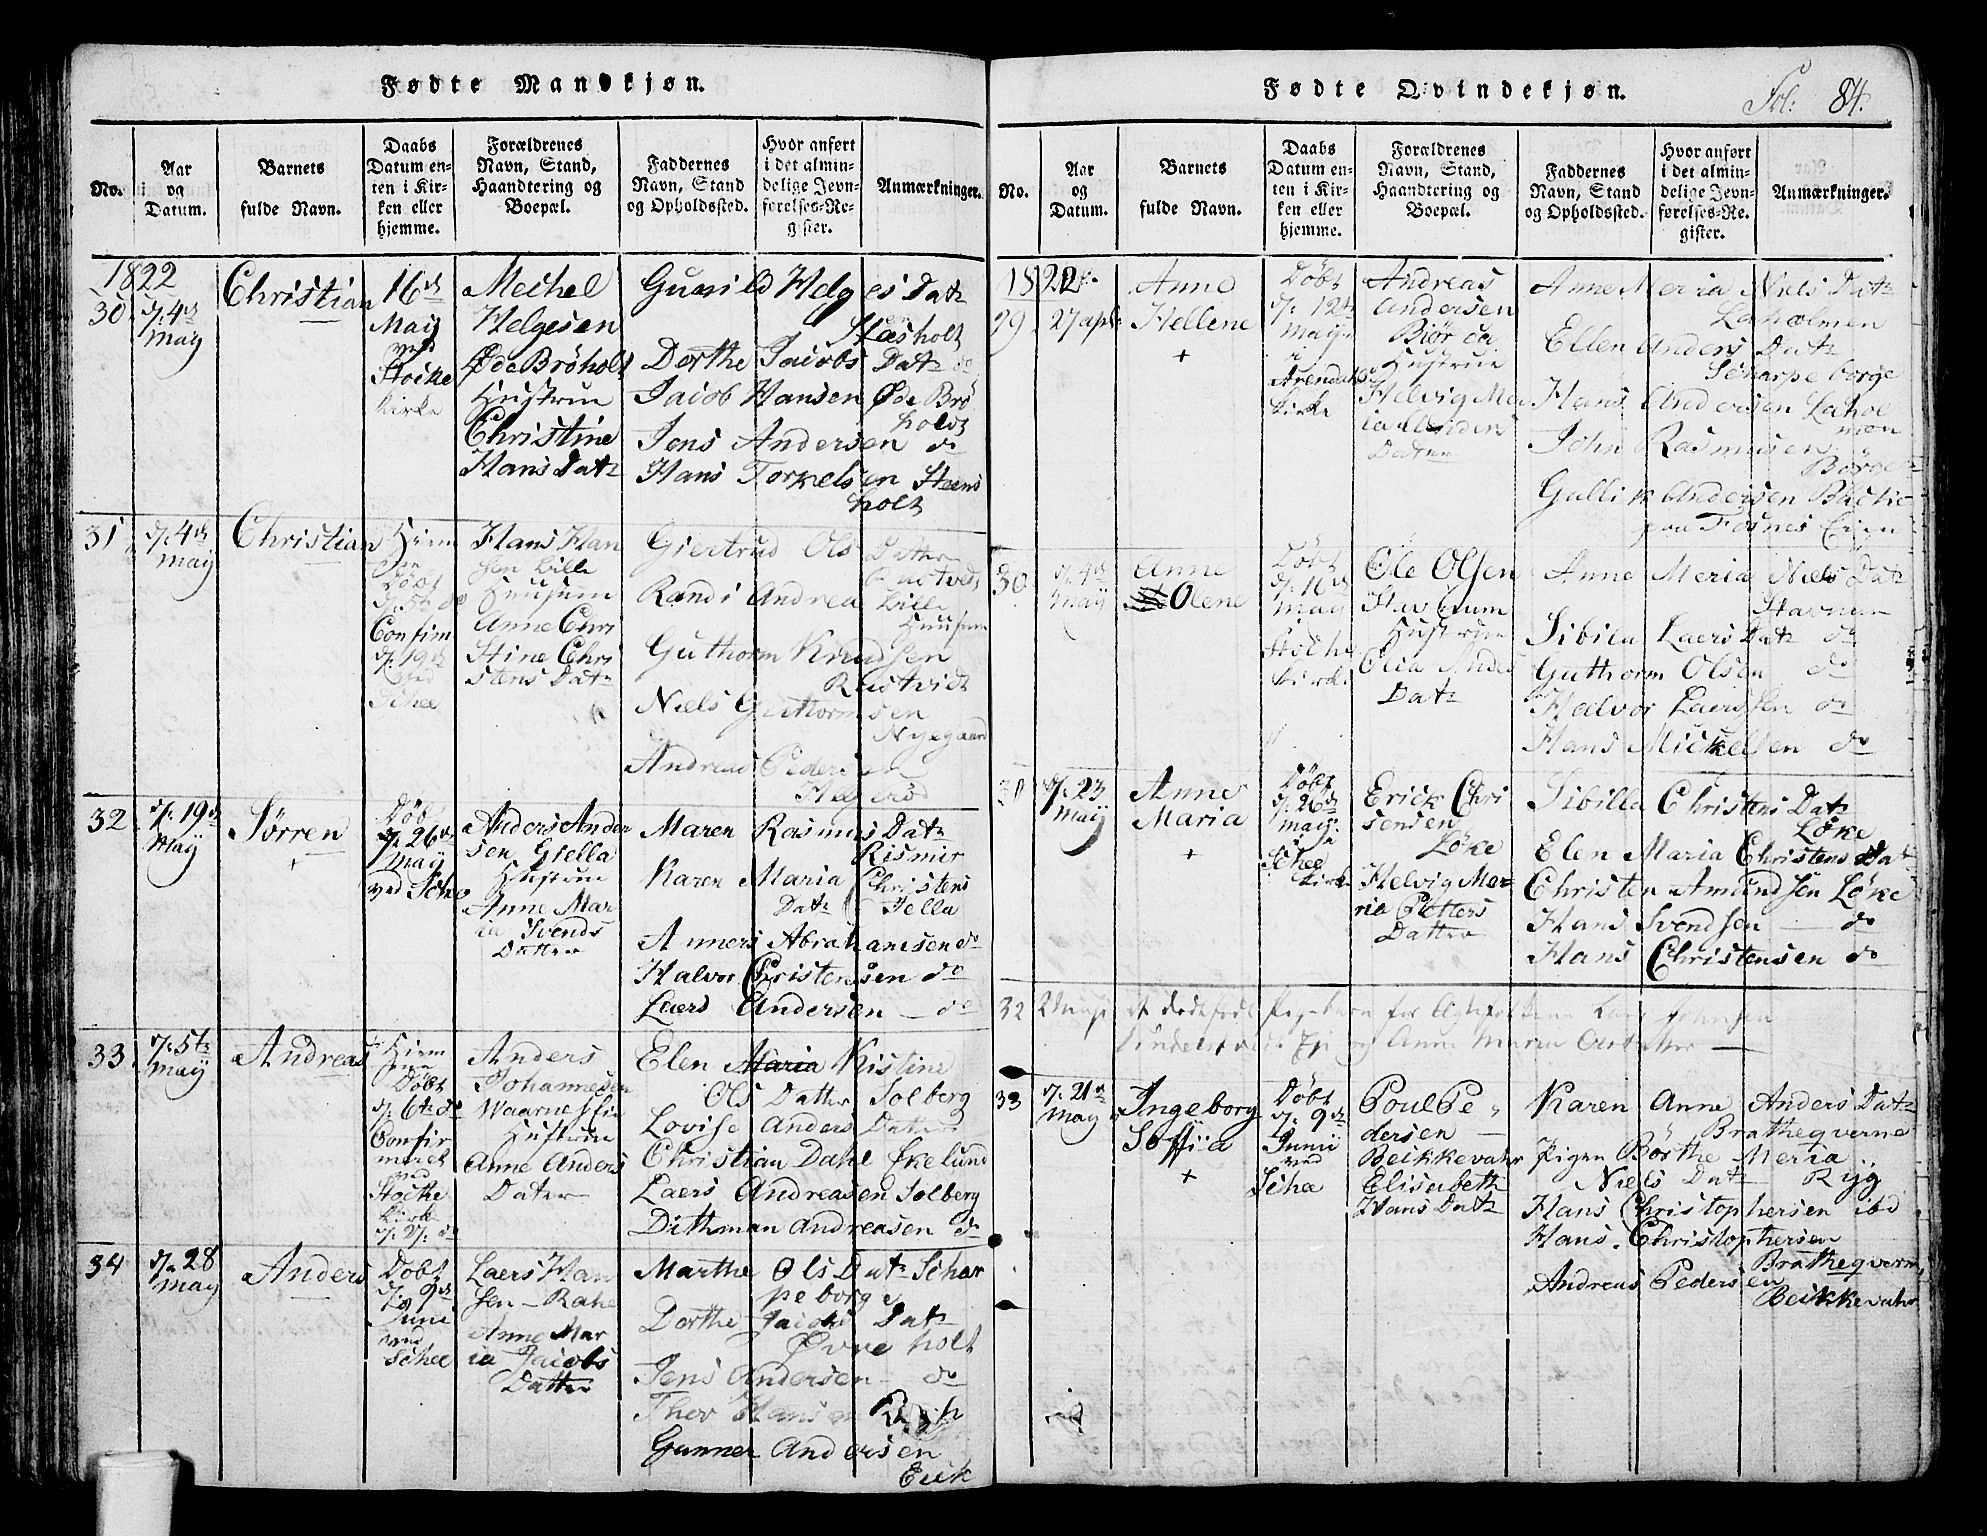 Fødte Mandkjøn.
No.
Aar
og
Datum.
Barnets
fulde Navn.
Daabs
Datum en-
ten i Kir-
ken eller
hjemme.
Forældrenes
Navn, Stand,
Haandtering og
Boepæl.
Faddernes
Navn, Stand
og Opholdssted.
Hvor anført
i det almin-
delige Jevn-
førelses-Re-
gister.
Anmærkninger.
1822
30
d. 4de
May
Christian
16de
May
ved
Stocke
Kirke
Michel
Helgesen
Øde Bröholt
Hustrue
Christine
Hans Datr
Gunild Helges Datr
Aasholt
Dorthe Jacobs Datr do
Jacob Hansen Øde Brö
holdt
Jens Andersen do
Hans Torkelsen Steens
holt
31
d. 4de
May
Christian
Hiem
Döbt
d. 5te do
Confirm
d. 19de
ved
Schee
Hans Han
sen Lille
Huusum
Anne Chri
stine Chri
stens Datr
Giertrud Ols Datter
Rastvidt
Randi Andrea Lille
Huusum
Guthorm Knudsen
Rastvidt
Niels Guttormsen
Nyegaard
Andreas Pedersen
Helgerød
32
d. 19de
May
Sörren
+
Döbt
d. 26de
May
ved Schee
Anders Ander
sen Giella
Hustrue
Anne Mar
ia Svends
Datter
Maren Rasmus Datr
Rismir
Karen Maria Christens
Datr Jella
Anners Abrahamsen do
Halvor Christensen do
Laers Andersen do
33
d. 5te
May
Andreas
Hiem
me
Döbt
d. 6te do
Confir
meret
ved
Stocke
Kirke
d. 27. do
Anders
Johannesen
Hustrue
Anne Anders
Dater
Elen Maria Kistine
Ols Datter Solberg
Lovise Anders Dater
Christian Dahl Økelund
Laers Andreasen Solberg
Dithman Andreasen do
34
d. 28
May
Anders
Döbt
d. 9de
Juni
ved
Schee
Laers Han
sen Rahe
Anne Mar
ia Jacobs
Datter
Marthe Ols Datr Schar
peborge
Dorthe Jacobs Datr
Øvre holt
Jens Andersen do
Thor Hansen
Gunner Andersen
Eeik
Fødte Qvindekjøn.
Fol: 84.
No.
Aar
og
Datum.
Barnets
fulde Navn.
Daabs
Datum en-
ten i Kir-
ken eller
hjemme.
Forældrenes
Navn, Stand,
Haandtering og
Boepæl.
Faddernes
Navn, Stand
og Opholdssted.
Hvor anført
i det almin-
delige Jevn-
førelses-Re-
gister.
Anmærkninger.
1822
29
27 apl:
Anne
Hellene
+
Döbt
d. 12te
May
i
Arendahls
Kirke
Andreas
Andersen
Hustrue
Helvig Mar
ia Anders
Datter
Anne Meria Niels Datr
Laholmen
Ellen Anders Datr
Scharpeborge
Hans Andersen Lahol
men
John Rasmusen
Börge
Gullik Andersen Backe
paa Fosnes Eien
30
d. 4de
May
Anne
Olene
Döbt
d. 16de
May
Stocke
Kirke
Ole Olsen
Havnum
Hustrue
Olia Andes
Datr
Anne Meria Niels Datr
Havnum
Sibila Laers Datr do
Guthorm Olsen do
Halvor Laersen do
Hans Mickelsen do
31
d. 23
May
Anne
Maria
+
Döbt
d. 26de
May
Schee
Kirke
Erick Chri
sensen
Löke
Helvig Mar
ria Petters
Datter
Sibilla Christens Datr
Löke
Elen Maria Christens Dat
Christen Amundsen Löke
Hans Svendsen do
Hans Christensen do
32
et dødfødt Pigebarn for Lars Johnsen
og Anne Maria
33
d. 21de
May
Ingeborg
Soffiia
+
Döbt
d. 9de
Junii
ved
Schee
Poul Pe
dersen
Beikkevahr
Elisabeth
Hans Datr
Karen Anne Anders Datr
Bratheqverne
Pigen Börthe Meria
Niels Datr Ryg
Hans Christophersen ibd
Hans Christophersen
Bratheqvern
Andreas Pedersen
Beikkevahr